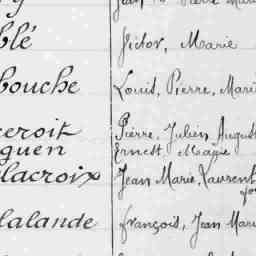 blé Victor, Marie
bouche Louis, Pierre, Mari
ceroit Pierre, Julien, August
guen Ernest, Marie
lacroix Jean Marie, Laurent
lalande François, Jean Mari